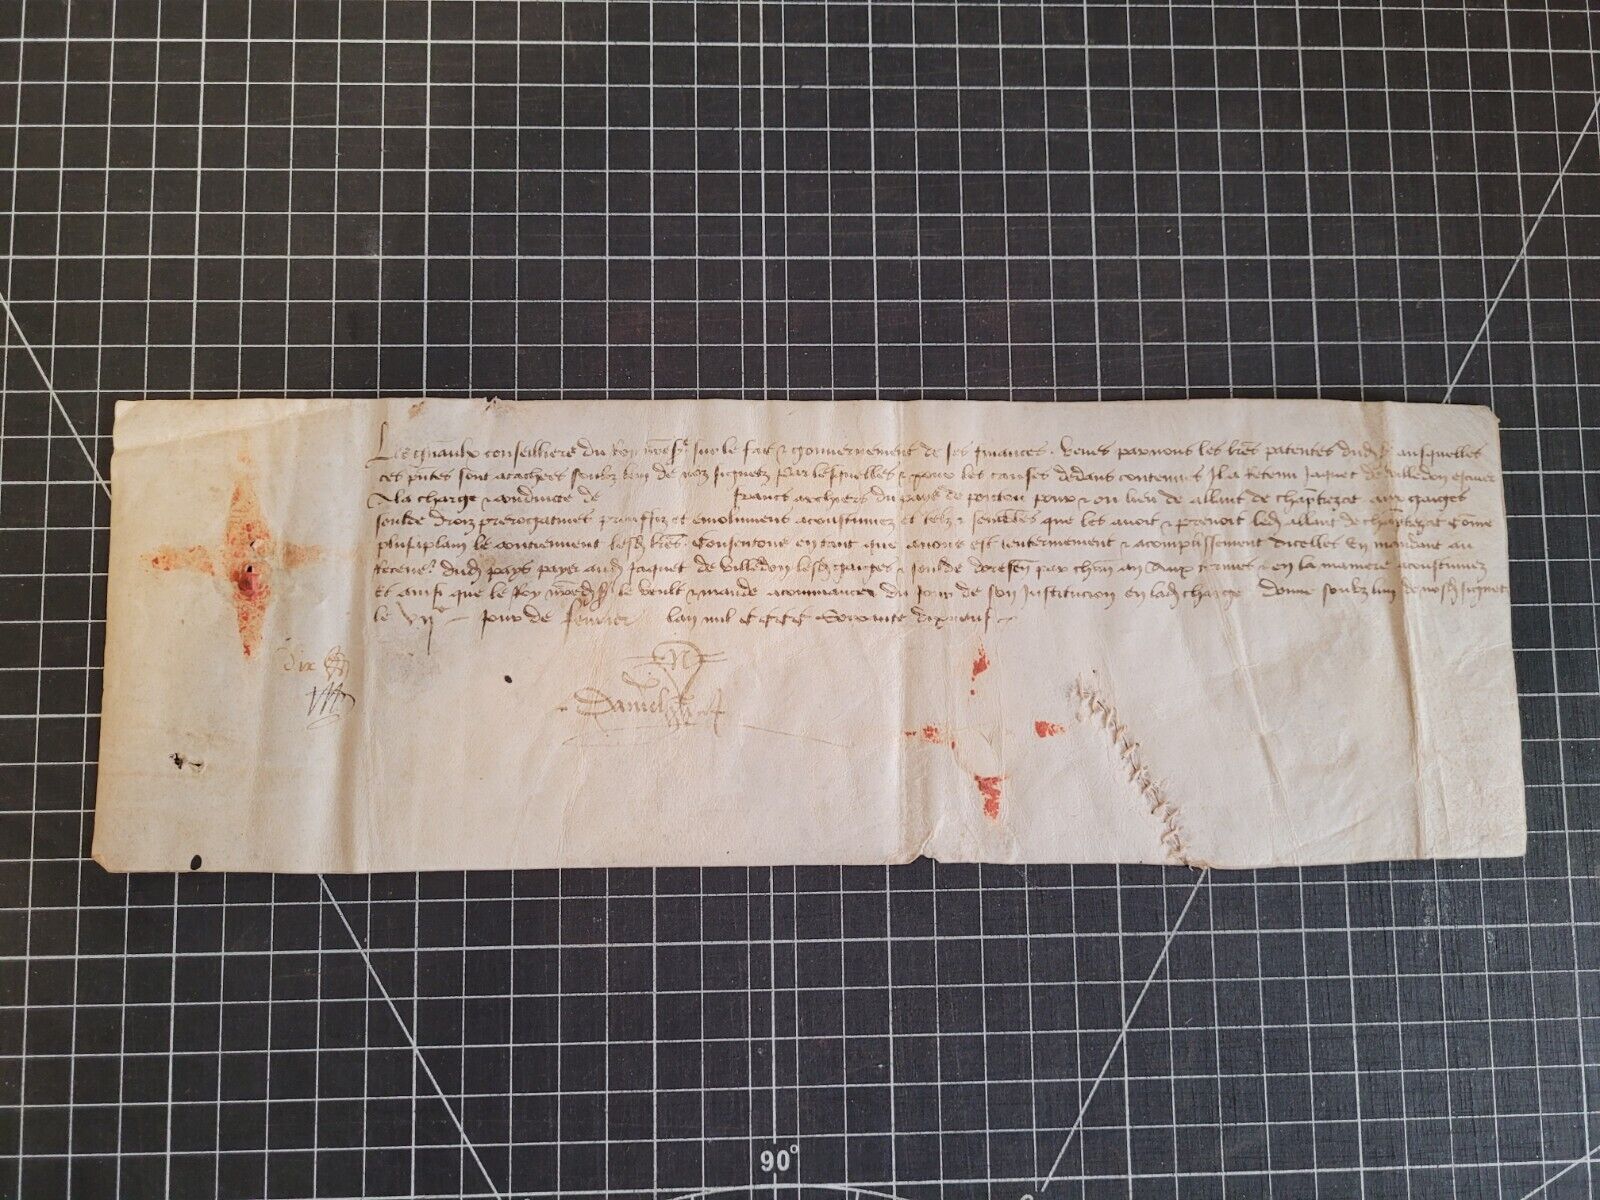 Les gnaulx conseilliers du Roy nre sr sur le fait & gouvernement de ses finances. Veues par nous les lres patentes dud sr ausquelles
ces pntes sont atachees soubz lun de noz signetz Par lesquelles & pour les causes dedans contenues Il a retenu Jaquet de Villedon escuier
A la charge & conduicte de francs archers du pays de poictou pour & ou lieu de allant de chaptezac aux gaiges
soulde droiz prerogatives prouffiz et emolumens acoustumez et telz & semblables que les avoit & prenoit led allant de chaptezac Come
plus aplain le contiennent lesd lres. Consentons en tant que a nous est lenterinement & acomplissement dicelles En mandant au
receveur dud pays paier aud Jaquet de Villedon lesd gaiges & soulde doresen par chun an Aux termes & en la maniere acoustumez
Et ainsi que le Roy nred sr le veult & mande a commancer du jour de son Institucion en lad charge donne soubz lun de nosd signetz
le VIIe jour de fevrier lan mil CCCC soixante dixneuf
Daniel
90°